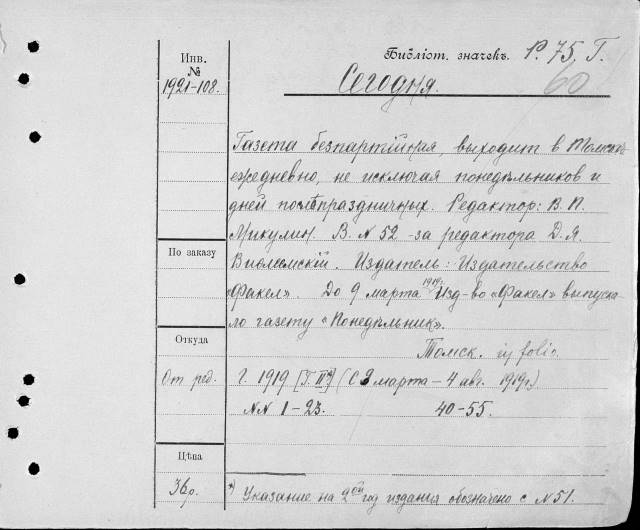 Инв. №
1921-108.
Библіот. значекъ. Р. 75, Г.
60
Сегодня.
Газета безпартійная, выходит в Томске
ежедневно, не исключая понедѣльников и
дней послѣпраздничных. Редактор: В. П.
Микулин. В. N 52 - за редактора Д. Я.
Издатель: Издательство
"Факел". До 9 марта 1919г. Изд-во "Факел" выпуска-
ло газету "Понедѣльник".
Томск. in folio.
По заказу
Откуда
От ред.
Г. 1919 [Г. II*)] (С 9 марта - 4 авг. 1919г.)
NN 1-23. 40-55.
Цѣна
36р.
*) Указание на 2ой год издания обозначено с N 51.